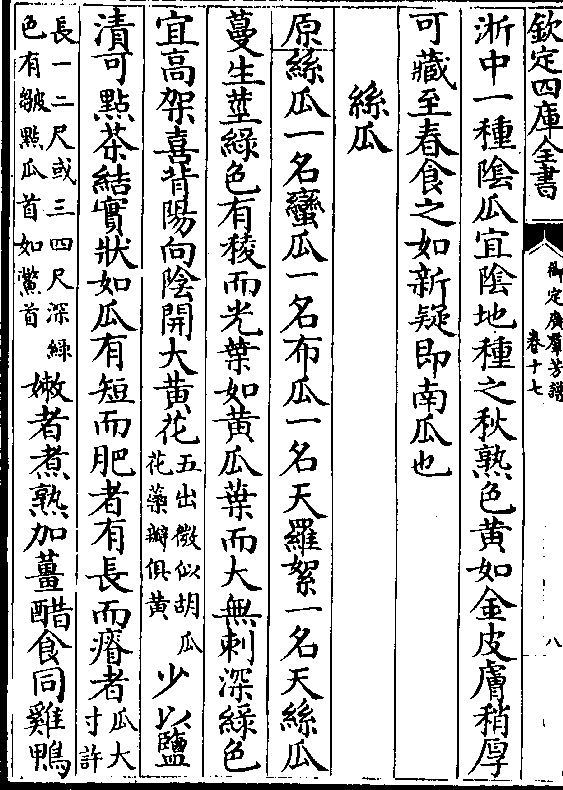 欽定四庫全書
御定廣羣芳譜
卷十七
八
浙中一種陰瓜宜陰地種之秋熟色黃如金皮膚稍厚
可藏至春食之如新疑即南瓜也
絲瓜
原絲瓜一名蠻瓜一名布瓜一名天羅絮一名天絲瓜
蔓生莖綠色有稜而光葉如黃瓜葉而大無刺深綠色
宜高架喜背陽向陰開大黃花五出微似胡瓜花蘂瓣俱黃少以鹽
漬可點茶結實狀如瓜有短而肥者有長而瘠者瓜大寸許
長一二尺或三四尺深綠色有皺點瓜首如鱉首嫩者煮熟加薑醋食同雞鴨